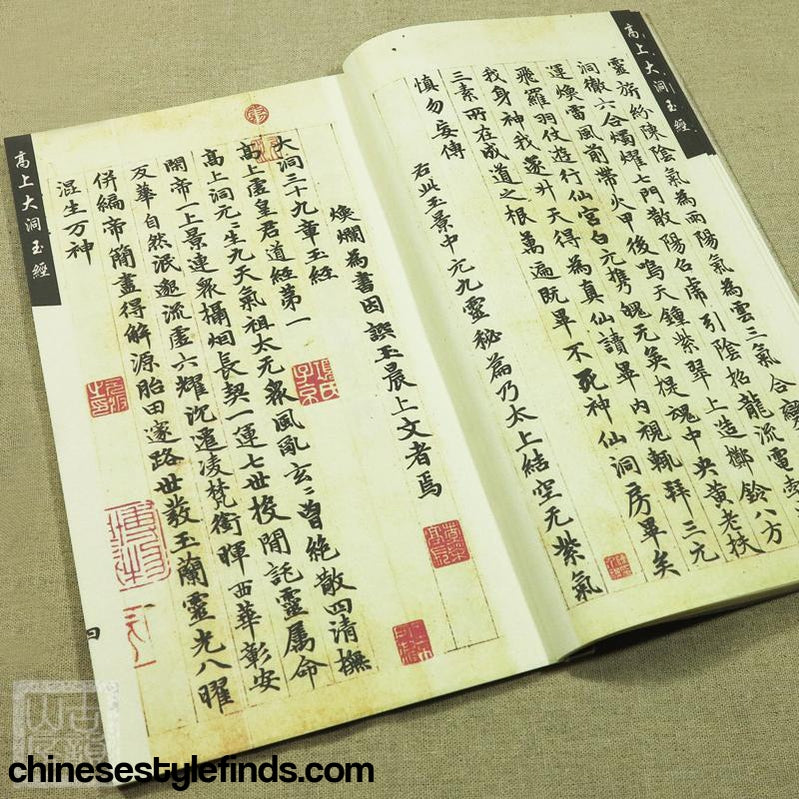 高上大洞玉經
靈旂紛陳陰氣為雨陽氣為雲三氣合變
洞徹六合燭耀七門散陽召虎引陰招龍流電
運煥雷風前帶火甲後鳴天鍾紫翠上造擲鈴八方
飛羅羽仗遊行仙宮白元攜魄无英提魂中央黃老扶
我身神我遂升天得為真仙讀畢內視輒拜三元
三素所在成道之根萬遍既畢不死神仙洞房畢矣
慎勿妄傳
右此玉景中元九靈秘篇乃太上結空无紫氣
煥爛為書因誤玉晨上文者焉
大洞三十九章玉經
高上虛皇君道經第一
高上洞元〻生九天氣祖太元眾風亂玄〻曾絕散四清撫
開帝一上景連眾攝烟長契一運七世投閒託靈屬命
反華自然泯邈流虛六耀沉遣凌梵衝暉西華彰安
併編帝簡盡得解源胎田邃路世發玉蘭靈光八曜
混生万神
高上大洞玉經
四
項氏子京
博物
chinesestylefinds.com